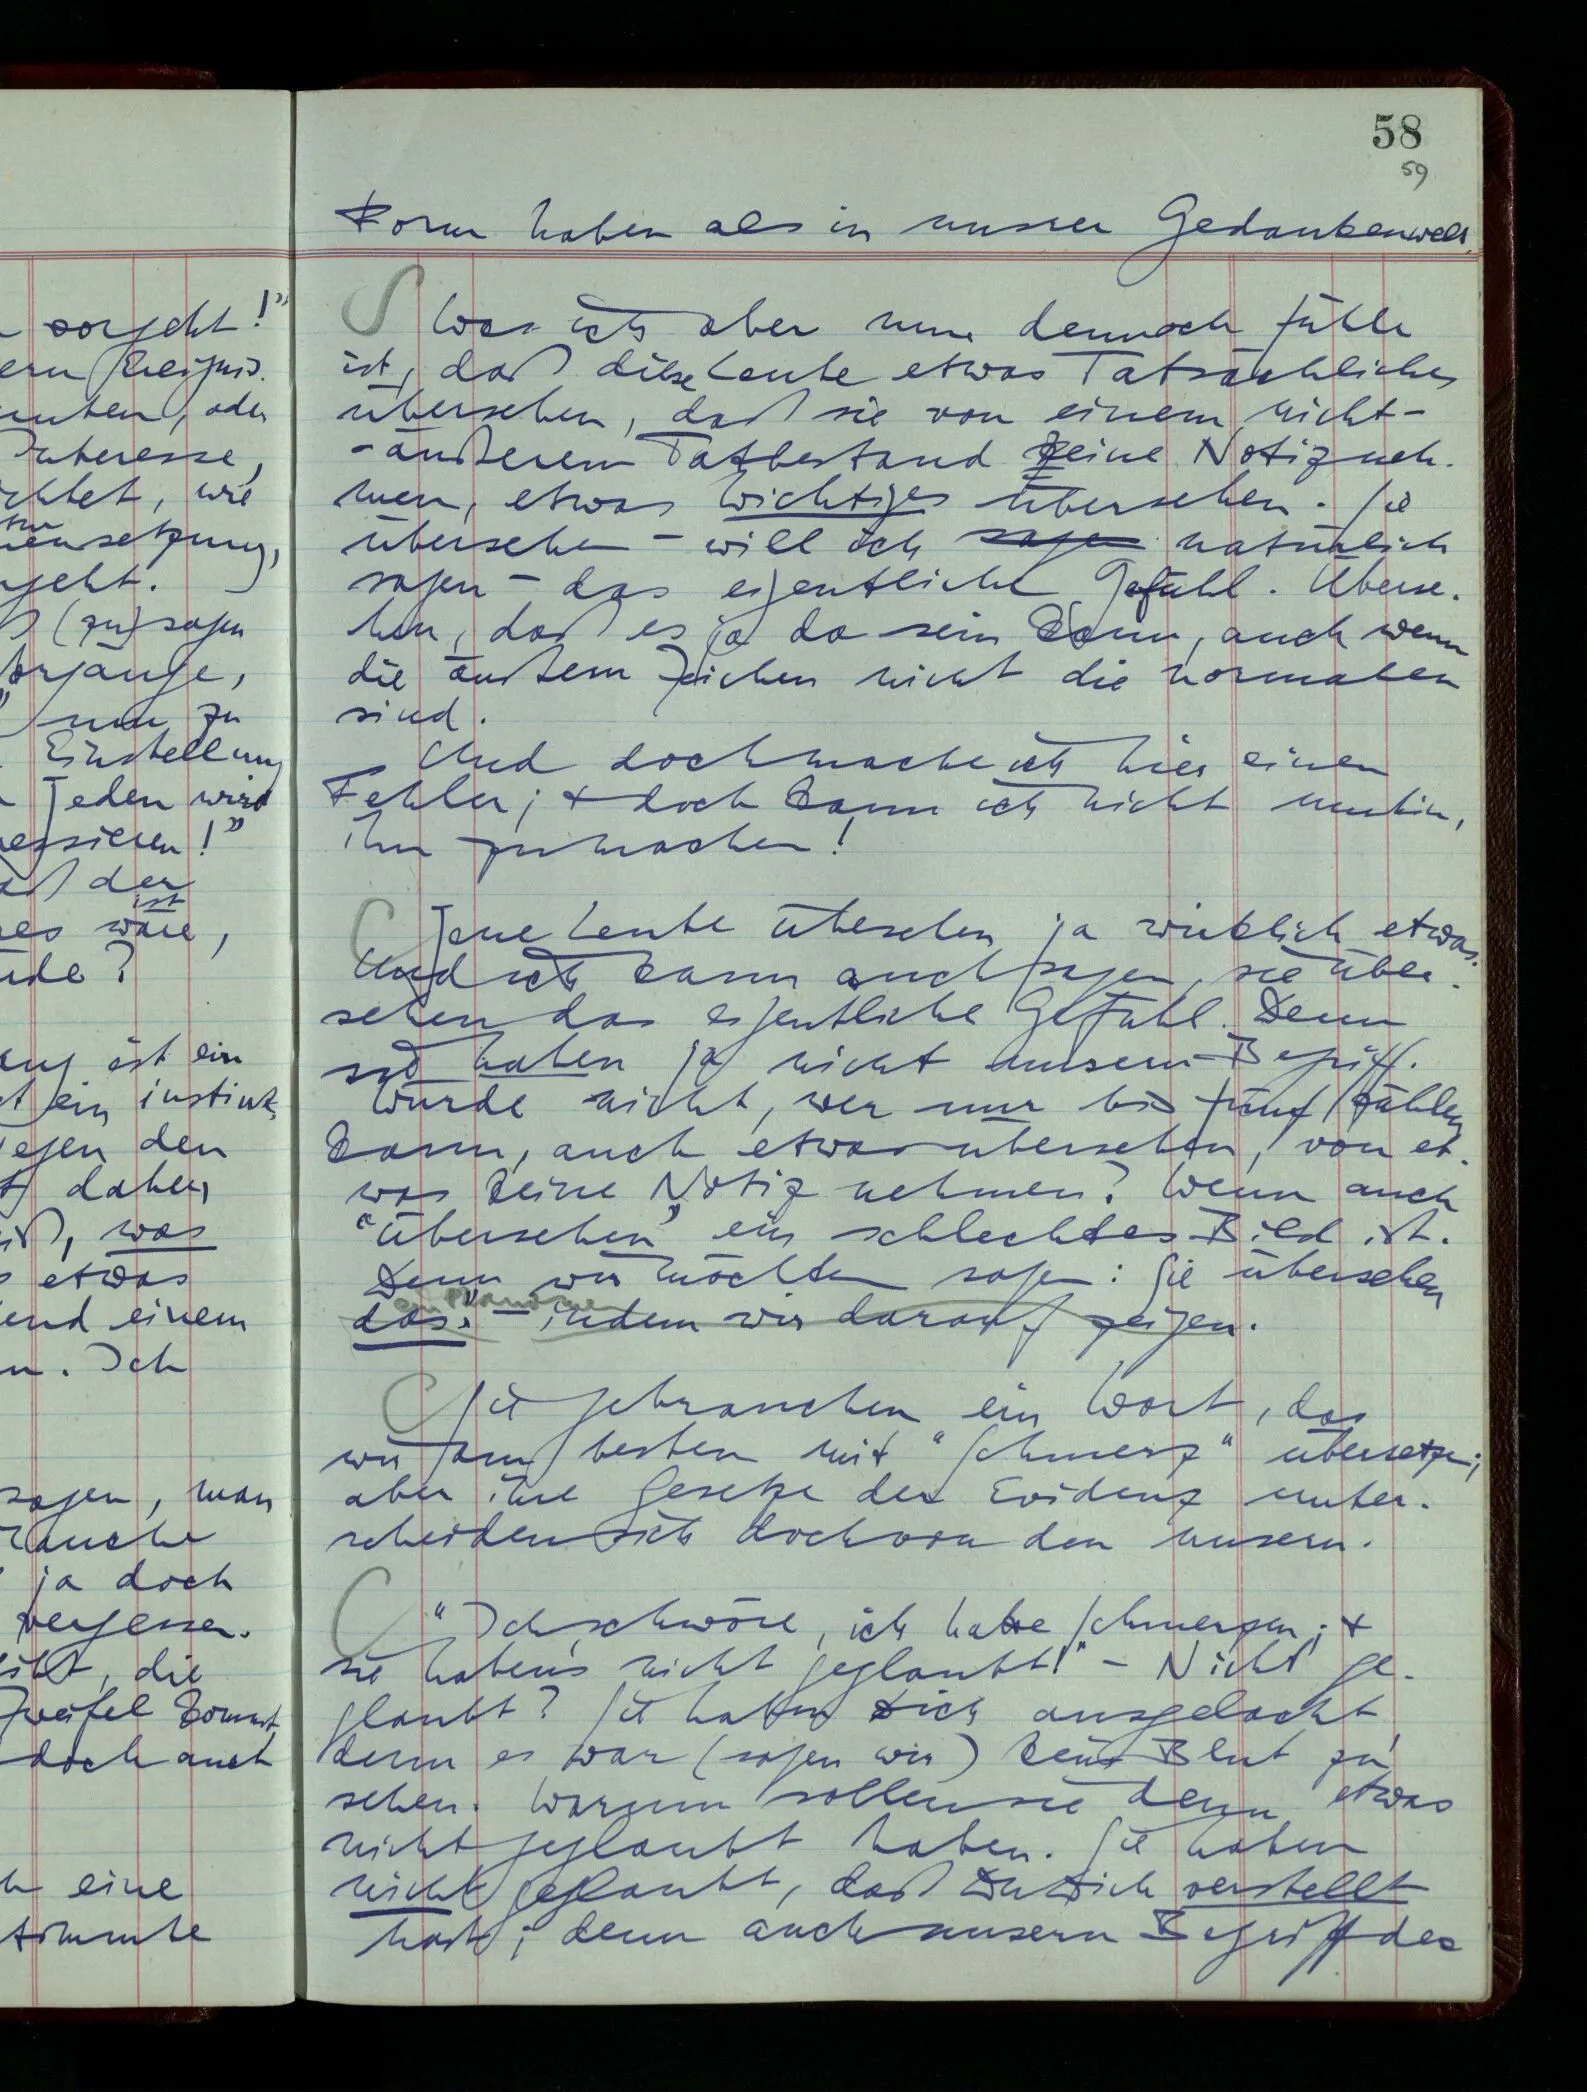 58
59
Form haben als in unsrer Gedankenwelt.
S Was ich aber nun dennoch fühle
ist, daß diese Leute etwas Tatsächliches
übersehen, daß sie von einem nicht-
-äußeren Tatbestand keine Notiz neh-
men, etwas wichtiges übersehen. Sie
übersehen – will ich sagen natürlich
sagen – das eigentliche Gefühl. Überse-
hen, daß es ja da sein kann, auch wenn
die äußern Zeichen nicht die normalen
sind.
Und doch mache ich hier einen
Fehler; & doch kann ich nicht umhin,
ihn zu machen!
Jene Leute übersehen ja wirklich etwas.
Und ich kann auch sagen, sie über-
sehen das eigentliche Gefühl. Denn
sie haben ja nicht unsern Begriff.
Würde nicht, wer nur bis fünf zählen
kann, auch etwas übersehen, von et-
was keine Notiz nehmen? Wenn auch
"übersehen" ein schlechtes Bild ist.
Denn wir möchten sagen: Sie übersehen
das." – indem wir darauf zeigen.
Sie gebrauchen ein Wort, das
wir am besten mit "Schmerz" übersetzen;
aber ihre Gesetze der Evidenz unter-
scheiden sich doch von den unsern.
"Ich schwöre, ich habe Schmerzen; &
sie haben's nicht geglaubt!" – Nicht ge-
glaubt? Sie haben Dich ausgelacht,
denn es war (sagen wir) kein Blut zu
sehen. Warum sollen sie denn etwas
nicht geglaubt haben. Sie haben
nicht geglaubt, daß Du Dich verstellt
hast; denn auch unsern Begriff des
vorgeht!"
Ereignis.
, oder
Interesse,
, wie
geht.
(zu) sagen
Vorgänge,
nun zu
Einstellung
Jeden wird
!"
daß der
ist
es wäre,
?
ist ein
ein instink-
gegen den
daher,
, was
etwas
einem
. Ich
sagen, man
ja doch
vergessen.
, die
Zweifel kommt
doch auch
eine